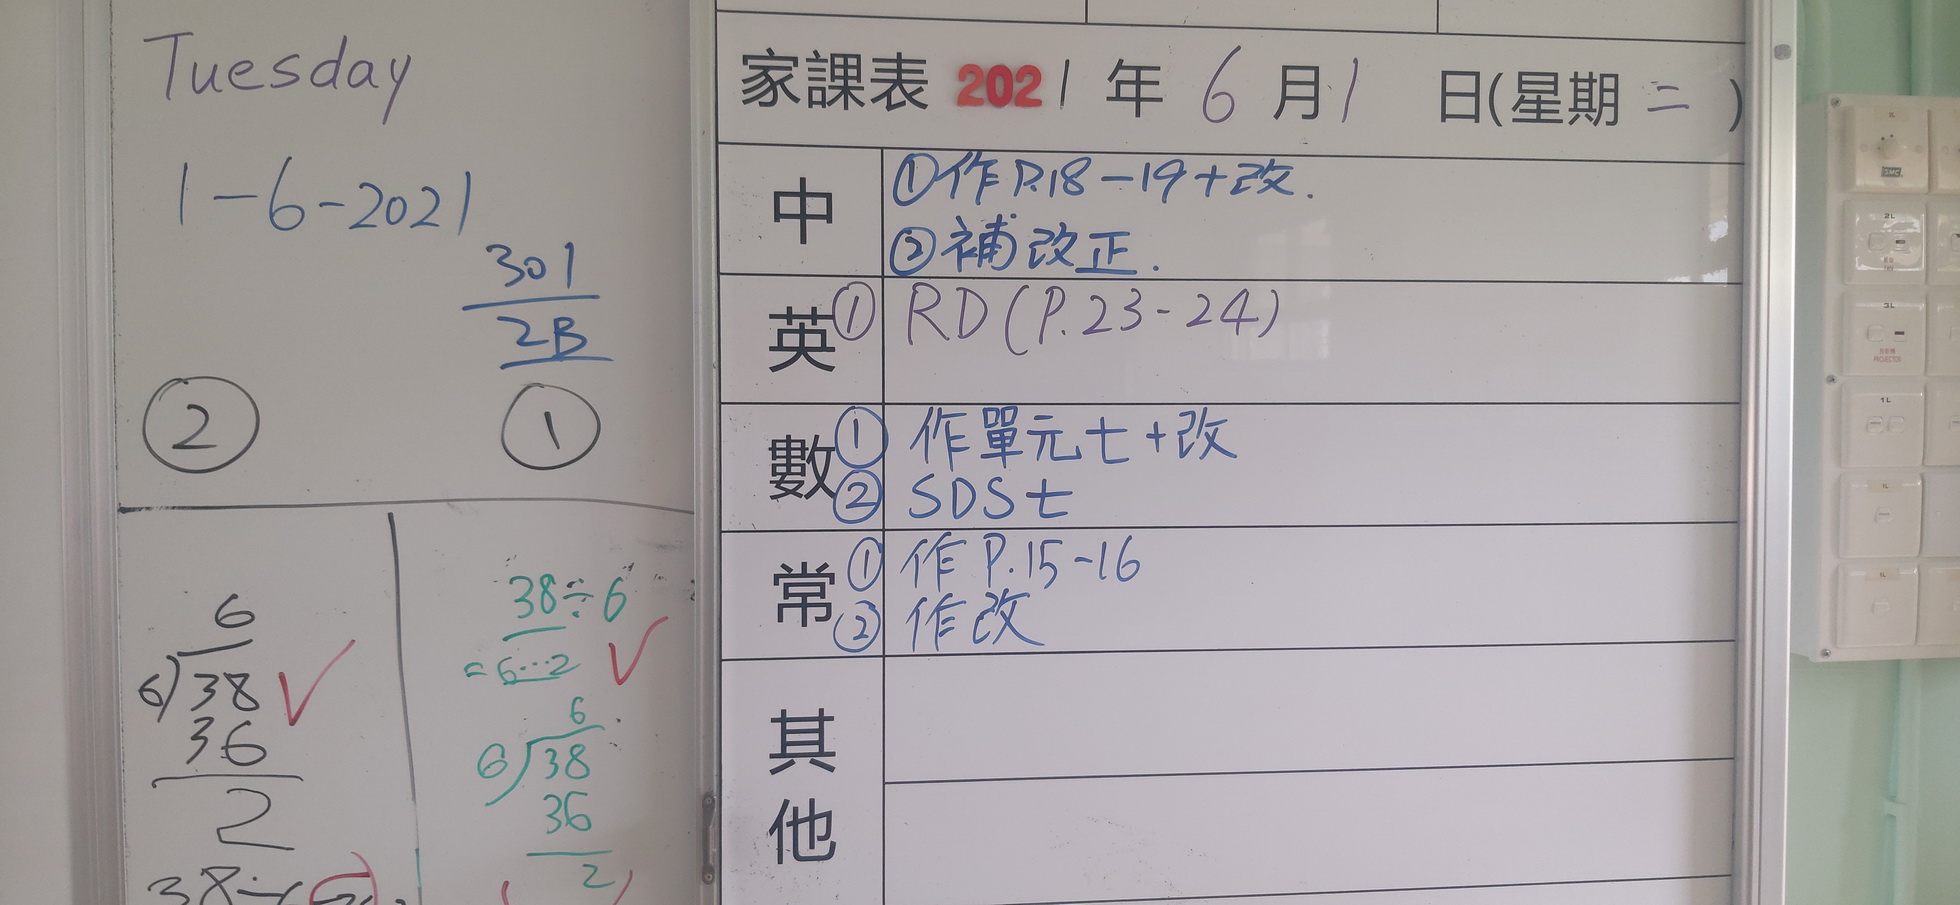 Tuesday
1-6-2021
301
2B
② ①
6
6)38
36
2
38÷6
=6…2
6
6)38
36
2
家課表 2021 年 6 月 1 日(星期 二 )
中
①作P.18-19+改.
②補改正.
英
① RD (P.23-24)
數
① 作單元七+改
② SDS七
常
① 作 P.15-16
② 作改
其他
2L
3L
PROJECTOR
1L
1L
1L